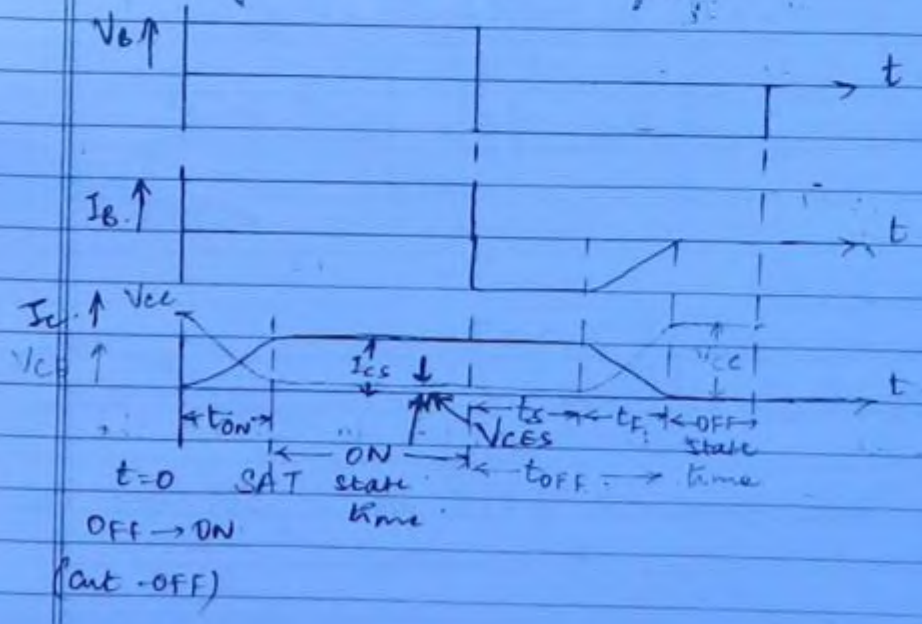 VB ↑
t
IB. ↑
t
Ic ↑ Vcc
Vc ↑
Ics
Vcc
t
tON
ts
tf
OFF state time
VCES
ON state time
tOFF
t=0
SAT
OFF → ON
(Cut-OFF)